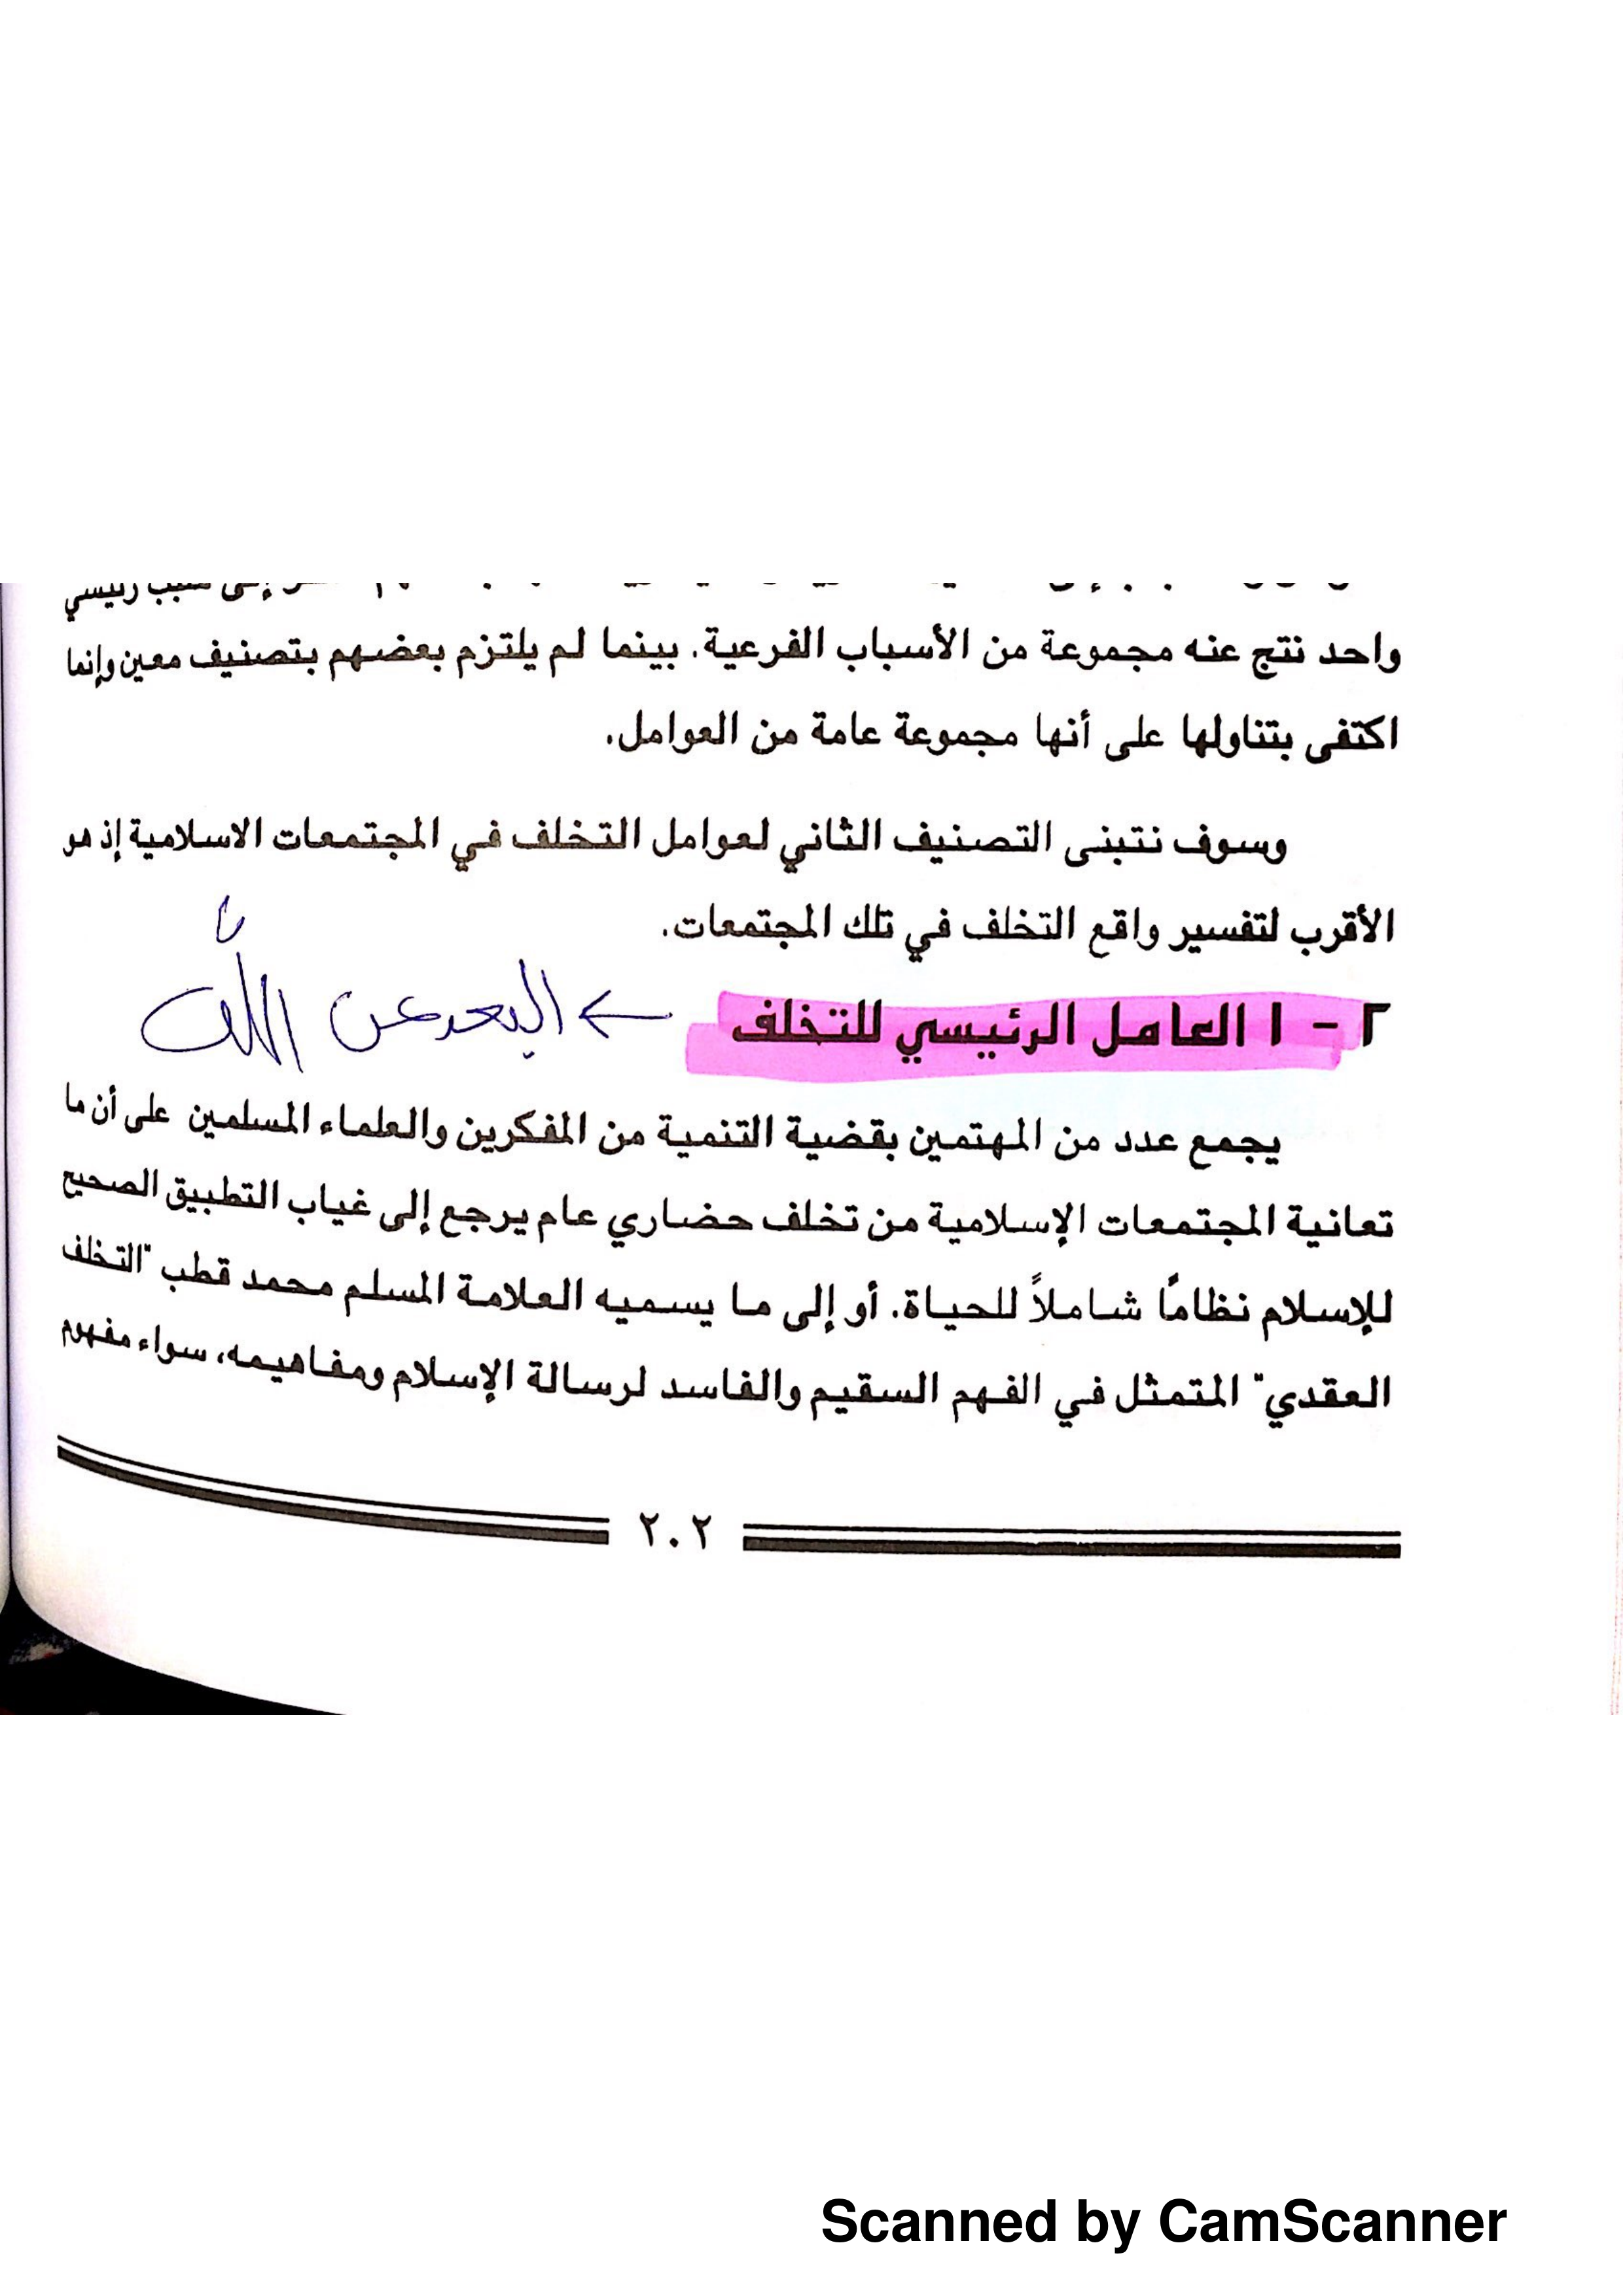 سبب رئيسي
واحد نتج عنه مجموعة من الأسباب الفرعية. بينما لم يلتزم بعضهم بتصنيف معين وإنما
اكتفى بتناولها على أنها مجموعة عامة من العوامل.
وسوف نتبنى التصنيف الثاني لعوامل التخلف في المجتمعات الاسلامية إذ هو
الأقرب لتفسير واقع التخلف في تلك المجتمعات.
٢ - ١ العامل الرئيسي للتخلف ← البعد عن الله
يجمع عدد من المهتمين بقضية التنمية من المفكرين والعلماء المسلمين على أن ما
تعانية المجتمعات الإسلامية من تخلف حضاري عام يرجع إلى غياب التطبيق الصحيح
للإسلام نظامًا شاملاً للحياة. أو إلى ما يسميه العلامة المسلم محمد قطب "التخلف
العقدي" المتمثل في الفهم السقيم والفاسد لرسالة الإسلام ومفاهيمه، سواء مفهوم
٢٠٢
Scanned by CamScanner